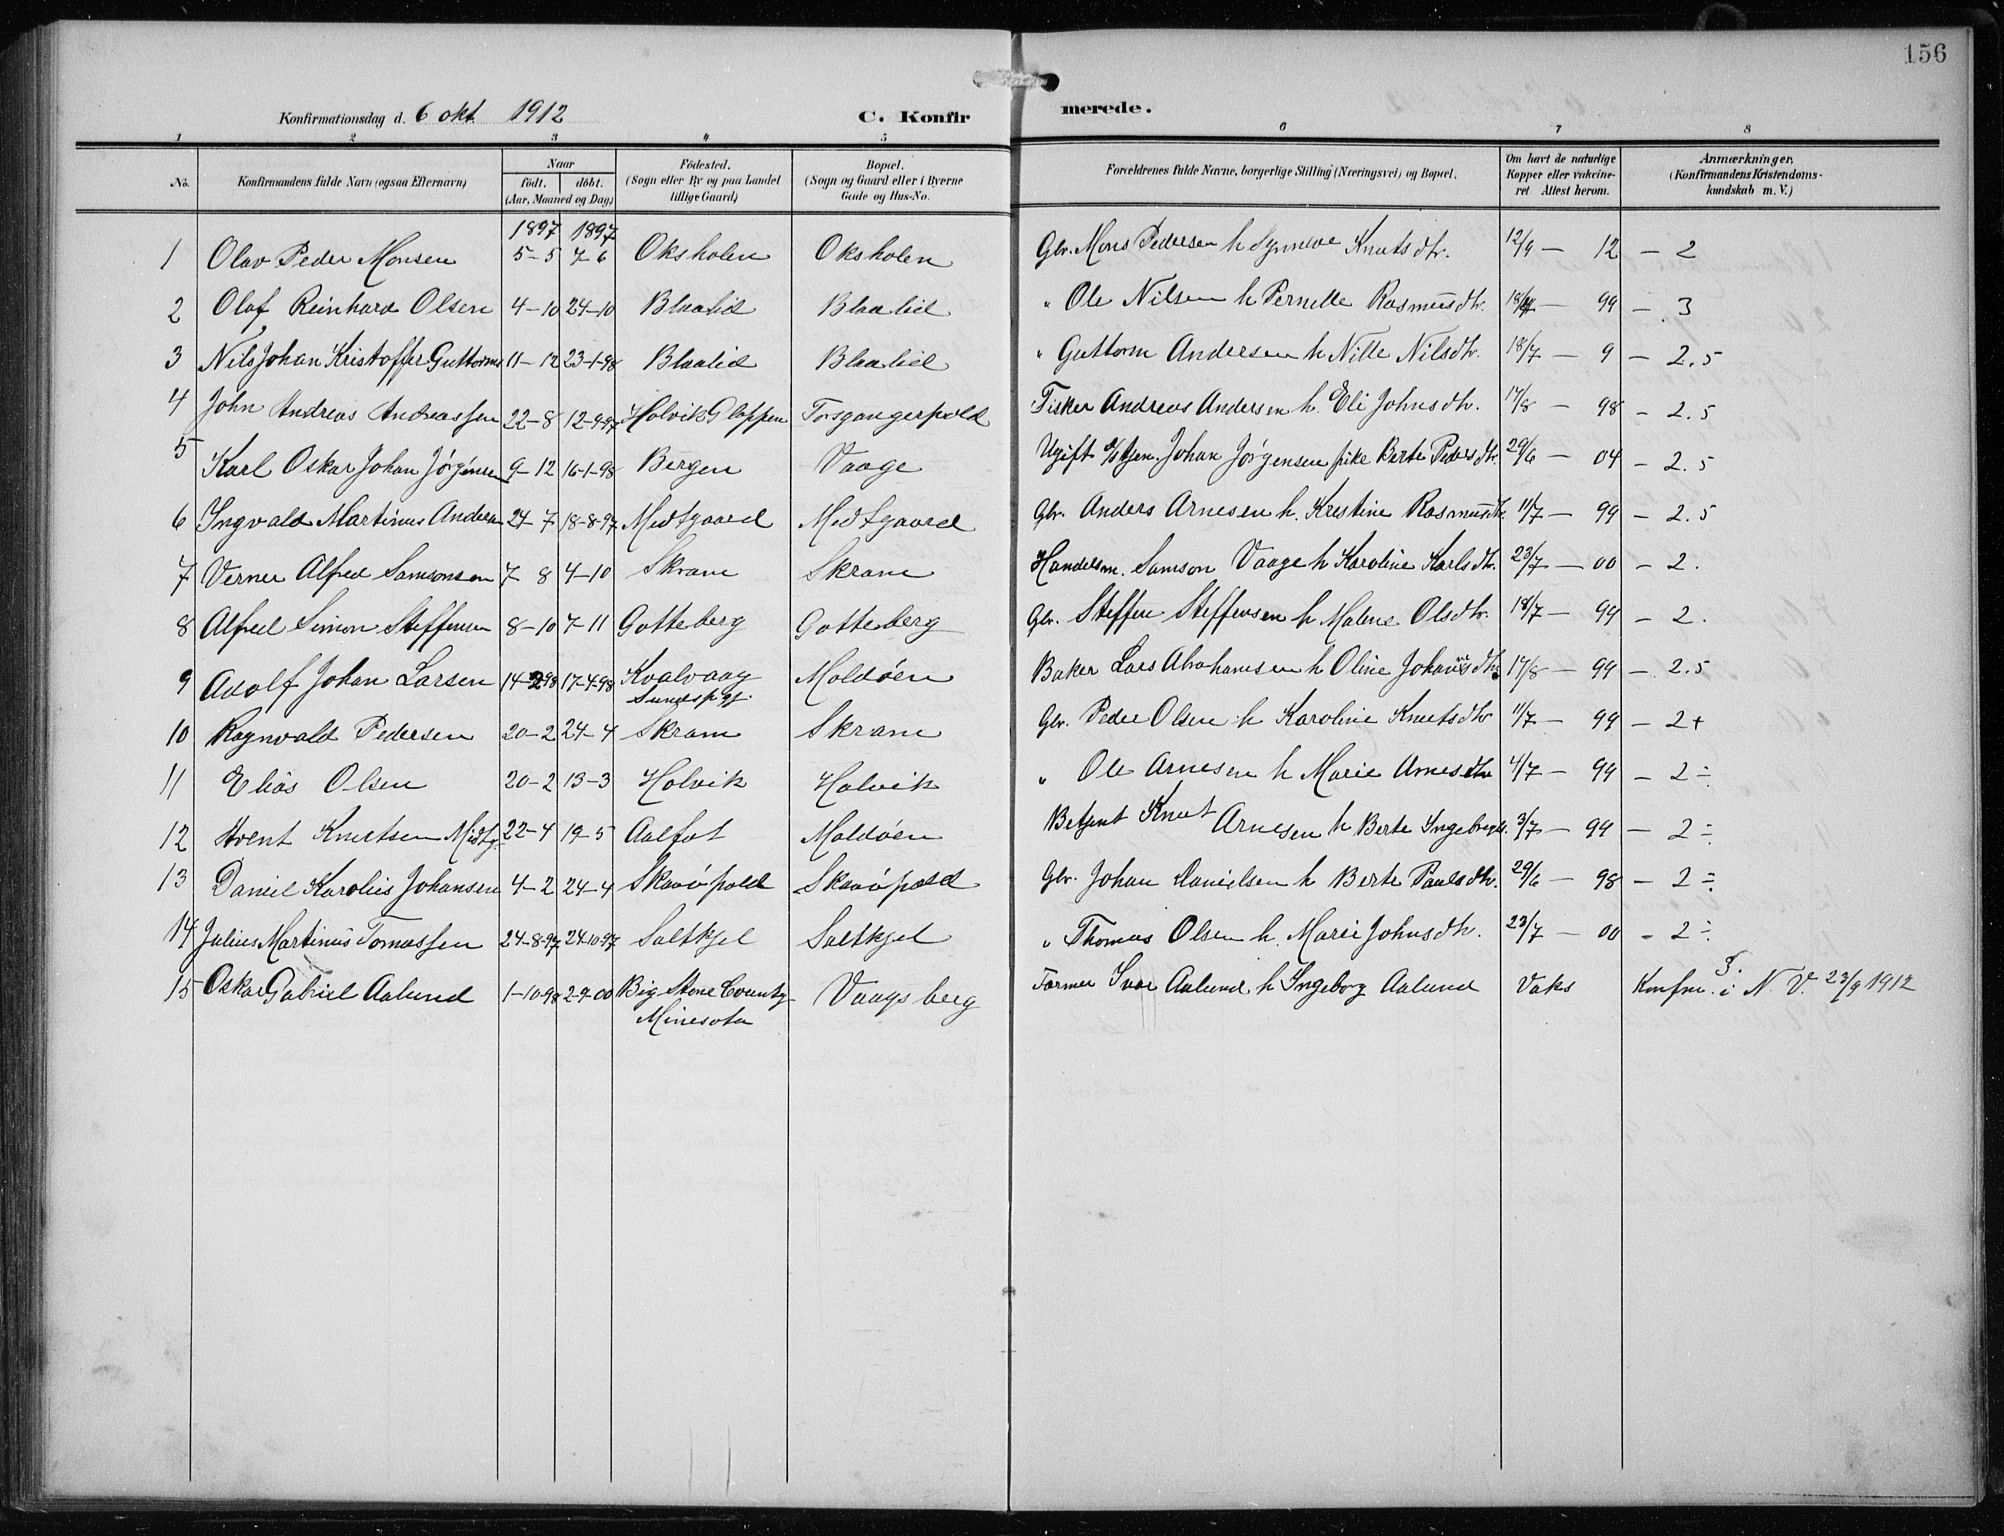 156
Konfirmationsdag d. 6 okt. 1912 C. Konfirmerede.
1 2 3 4 5 6 7 8
No. Konfirmandens fulde Navn (ogsaa Efternavn) Naar født. døbt. (Aar, Maaned og Dag) Fødested. (Sogn eller By og paa Landet tillige Gaard) Bopæl. (Sogn og Gaard eller i Byerne Gade og Hus-No. Forældrenes fulde Navne, borgerlige Stilling (Næringsvei) og Bopæl. Om havt de naturlige Kopper eller vakcineret Attest herom. Anmærkninger. (Konfirmandens Kristendomskundskab m. V.)
1897 1897
1 Olav Peder Monsen 5-5 7-6 Oksholen Oksholen Gbr. Mons Pedersen h Synneve Knutsdtr. 12/9 - 12 - 2
2 Olaf Reinhard Olsen 4-10 24-10 Blaalid Blaalid " Ole Nilsen h Pernelle Rasmusdtr. - 99 - 3
3 Nils Johan Kristoffer Guttorms 11-12 23-1-98 Blaalid Blaalid " Guttorm Andersen h Nille Nilsdtr. 18/7 - 9 - 2.5
4 John Andreas Andreassen 22-8 12-9-97 Holvik Gloppen Torsgangerpold Fisker Andreas Andersen h. Eli Johnsdtr. 17/8 - 98 - 2.5
5 Karl Oskar Johan Jørgensen 9-12 16-1-98 Bergen Vaage Ugift Johan Jørgensen pike Berte Pedersdtr. 29/6 - 04 - 2.5
6 Ingvald Martinus Andersen 24-7 18-8-97 Medtgaard Medtgaard Gbr. Anders Arnesen h. Kristine Rasmusdtr. 11/7 - 99 - 2.5
7 Verner Alfred Samsonsen 7 8 4-10 Skram Skram Handelsm. Samson Vaage h Karoline Karlsdtr. 23/7 - 00 - 2.
8 Alfred Simon Steffensen 8-10 7-11 Gotteberg Gotteberg Gbr. Steffen Steffensen h Malene Olsdtr. 18/7 - 99 - 2.
9 Adolf Johan Larsen 14-2 98 17-4-98 Kvalvaag Sunds pgj. Moldøen Baker Lars Abrahamsen h Oline Johannesdtr. 17/8 - 99 - 2.5
10 Ragnvald Pedersen 20-2 24-4 Skram Skram Gbr. Peder Olsen h Karoline Knutsdtr 11/7 - 99 - 2+
11 Elias Olsen 20-2 13-3 Holvik Holvik " Ole Arnesen h Marie Arnesdtr 4/7 - 99 - 2÷
12 Knutsen Midtg. 22-4 19-5 Aalfot Moldøen Betjent Knut Arnesen h Berte Ingebregts. 3/7 - 99 - 2÷
13 Daniel Karolius Johansen 4-2 24-4 Skavøpold Skavøpold Gbr. Johan Danielsen h Berte Paulsdtr. 29/6 - 98 - 2÷
14 Julius Martinus Tomassen 24-8-97 24-10-97 Saltkjel Saltkjel " Thomas Olsen h. Marie Johnsdtr. 23/7 - 00 - 2÷
15 Oskar Gabriel Aalund 1-10-98 2-9-00 Big Stone County Minesota Vaagsberg Farmer Ivar Aalund h Ingeborg Aalund Vaks Konfm. i N. V. 23/9 1912